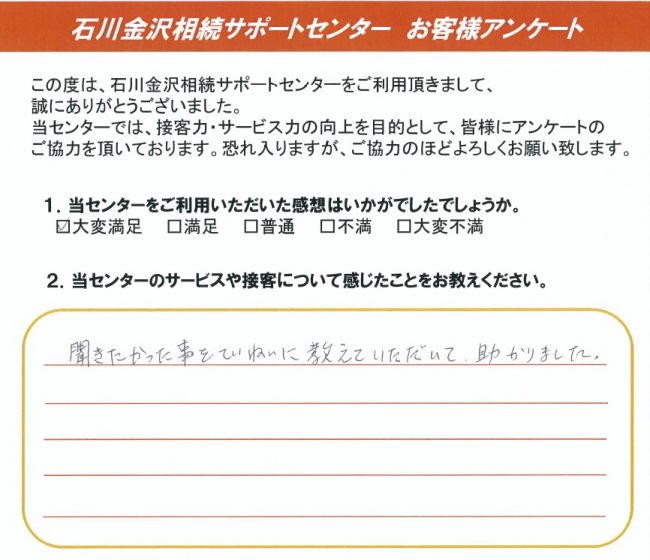 石川金沢相続サポートセンター お客様アンケート
この度は、石川金沢相続サポートセンターをご利用頂きまして、
誠にありがとうございました。
当センターでは、接客力・サービス力の向上を目的として、皆様にアンケートの
ご協力を頂いております。恐れ入りますが、ご協力のほどよろしくお願い致します。
1．当センターをご利用いただいた感想はいかがでしたでしょうか。
☑大変満足 □満足 □普通 □不満 □大変不満
2．当センターのサービスや接客について感じたことをお教えください。
聞きたかった事をていねいに教えていただいて、助かりました。